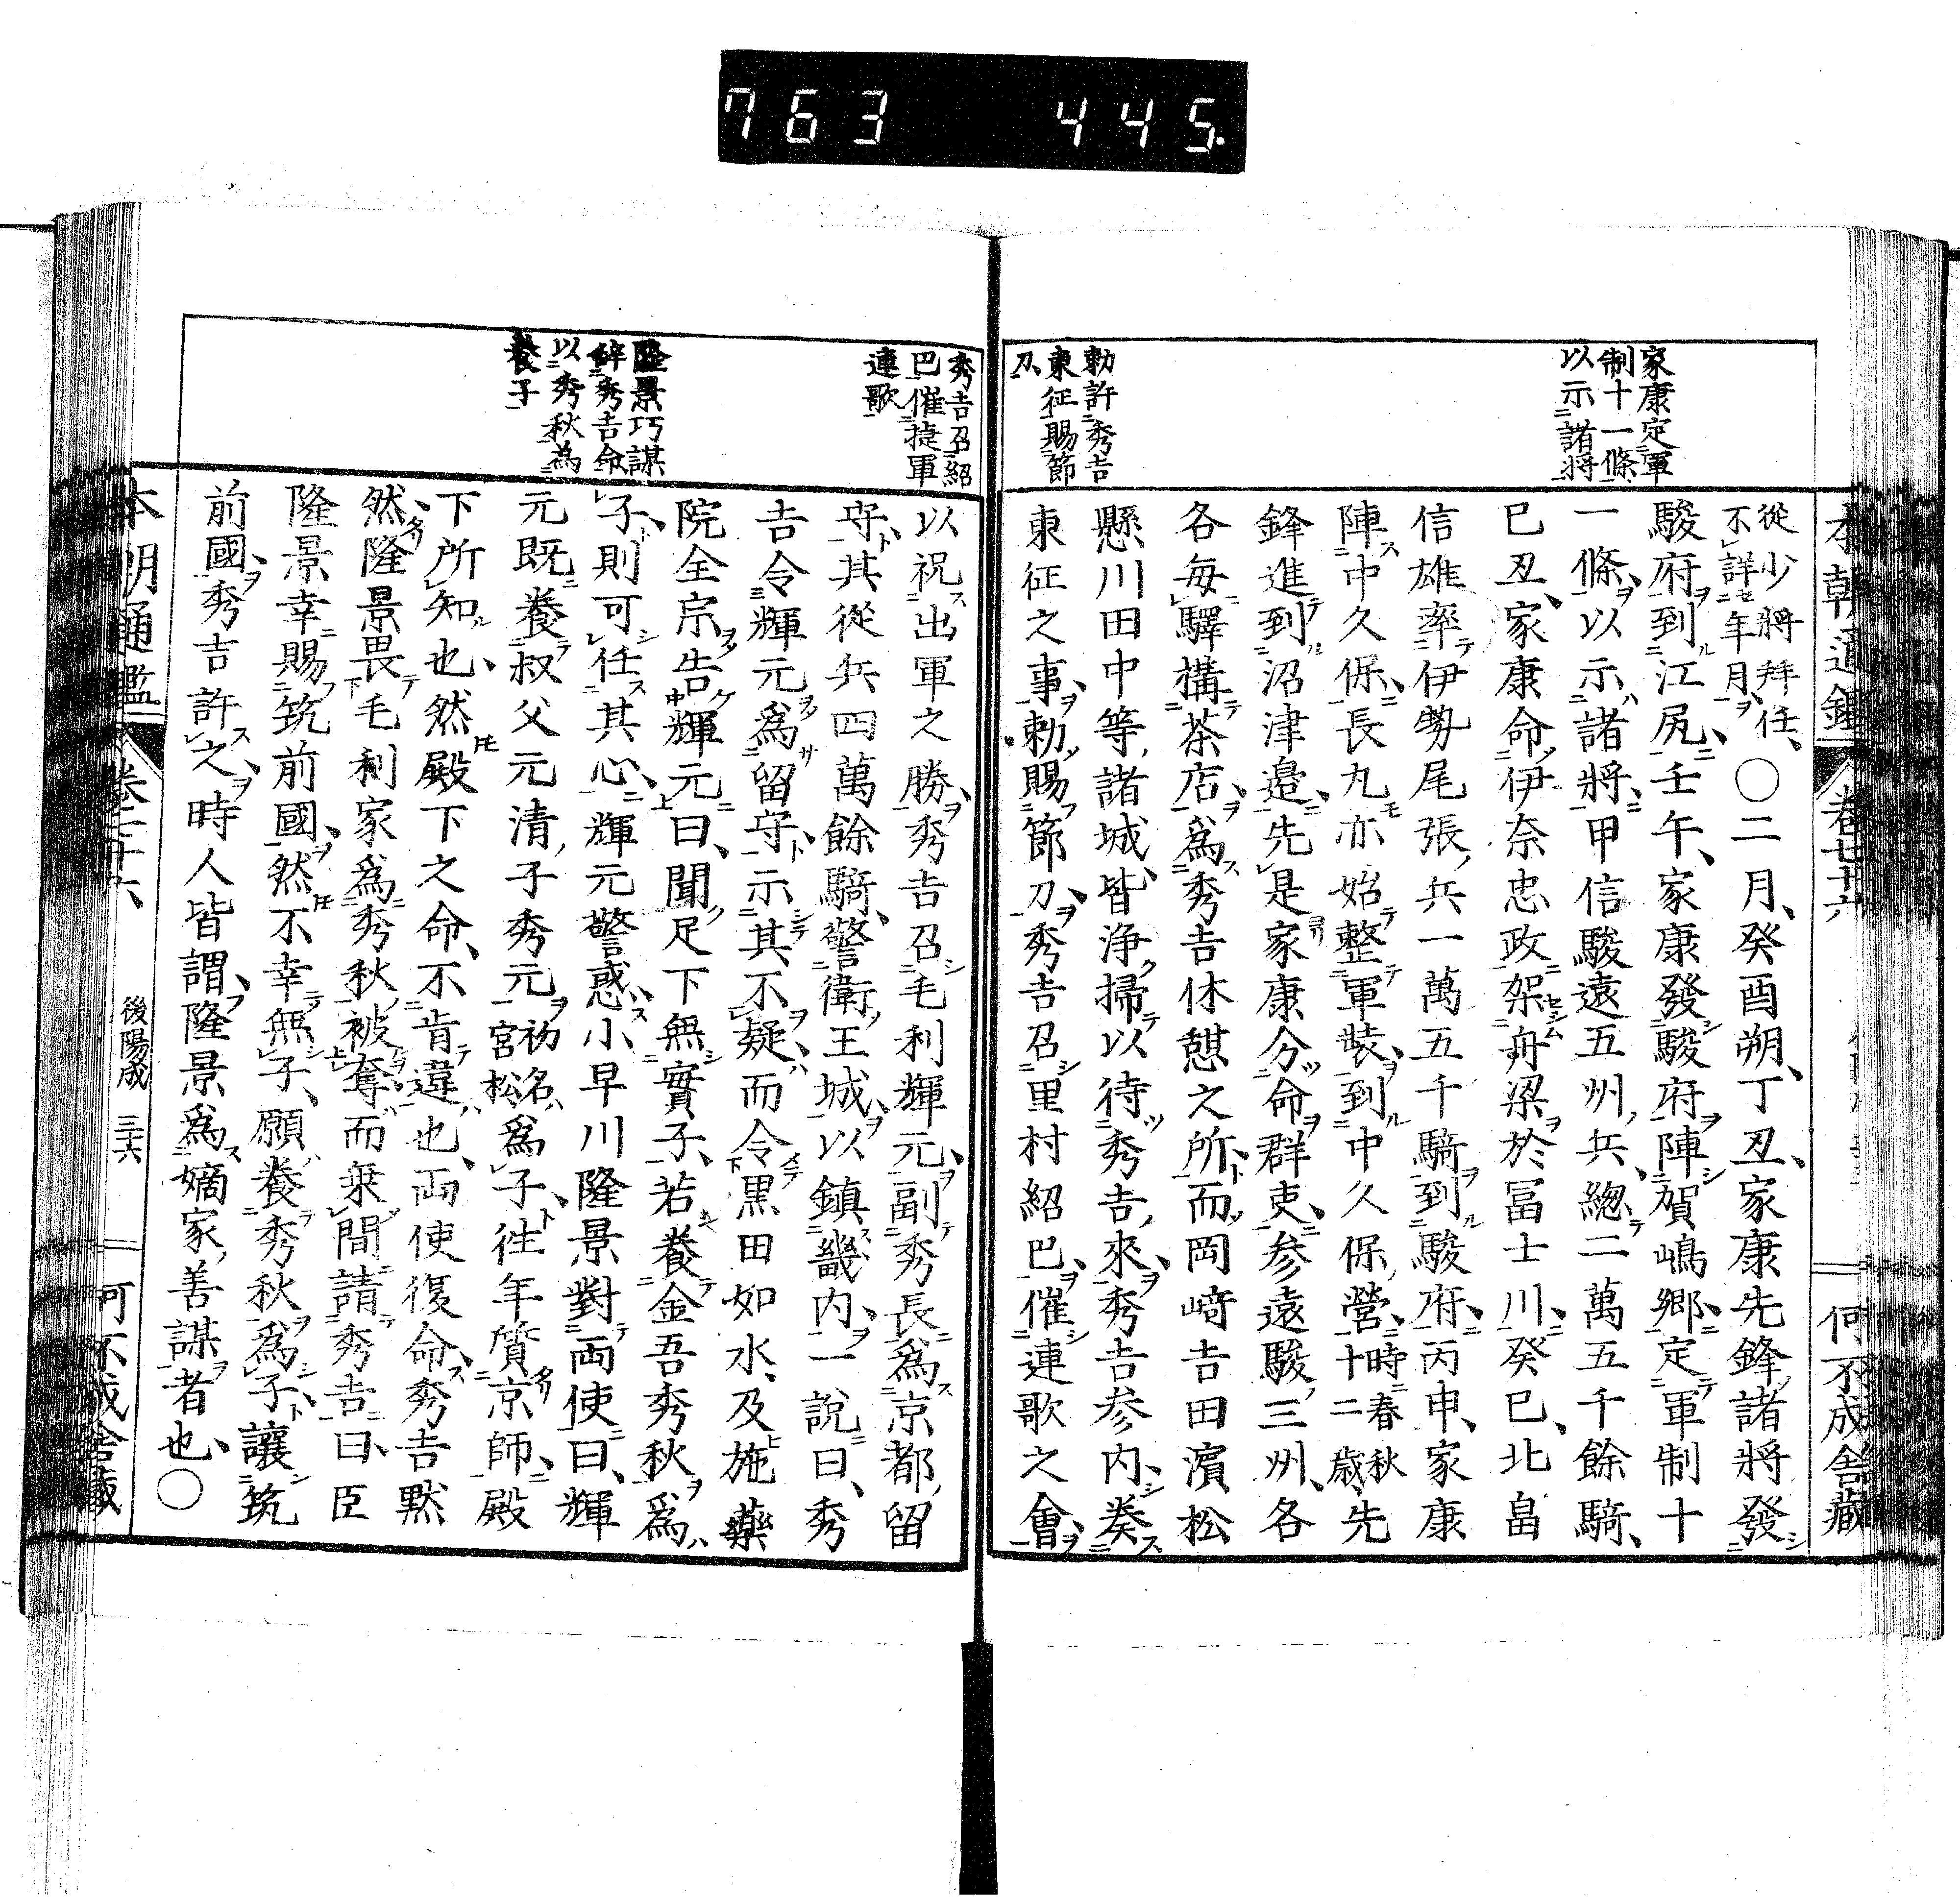 763 445.
家康定軍
制十一條
以示諸将
勅許秀吉
東征賜節
刀
本朝通鑑 卷七十六 何不成舎藏
從少將拜任
不詳年月〇二月癸酉朔丁丑家康先鋒諸將發
駿府到江尻壬午家康發駿府陣賀嶋郷定軍制十
一條以示諸將甲信駿遠五州兵總二萬五千餘騎
已丑家康命伊奈忠政架舟梁於冨士川癸巳北畠
信雄率伊勢尾張兵一萬五千騎到駿府丙申家康
陣中久保長丸亦始整軍裝到中久保營時春秋十二歳先
鋒進到沼津邉先是家康分命群吏参遠駿三州各
各毎驛構茶店爲秀吉休憩之所而岡﨑吉田濱松
懸川田中等諸城皆浄掃以待秀吉來秀吉参内奏
東征之事勅賜節刀秀吉召里村紹巴催連歌之會
秀吉召紹
巴催捷軍
連歌
隆景巧謀
辭秀吉命
以秀秋為
養子
以祝出軍之勝秀吉召毛利輝元副秀長爲京都留
守其從兵四萬餘騎警衛王城以鎮畿内一說曰秀
吉令輝元爲留守示其不疑而令黒田如水及施藥
院全宗告輝元曰聞足下無實子若養金吾秀秋爲
子則可任其心輝元警惑小早川隆景對兩使曰輝
元既養叔父元清子秀元初名宮松爲子往年質京師殿
下所知也然殿下之命不肯違也兩使復命秀吉默
然隆景畏毛利家爲秀秋被奪而乗間請秀吉曰臣
隆景幸賜筑前國然不幸無子願養秀秋爲子讓筑
前國秀吉許之時人皆謂隆景爲嫡家善謀者也〇
本朝通鑑 卷七十六 後陽成 三十六 何不成舎藏